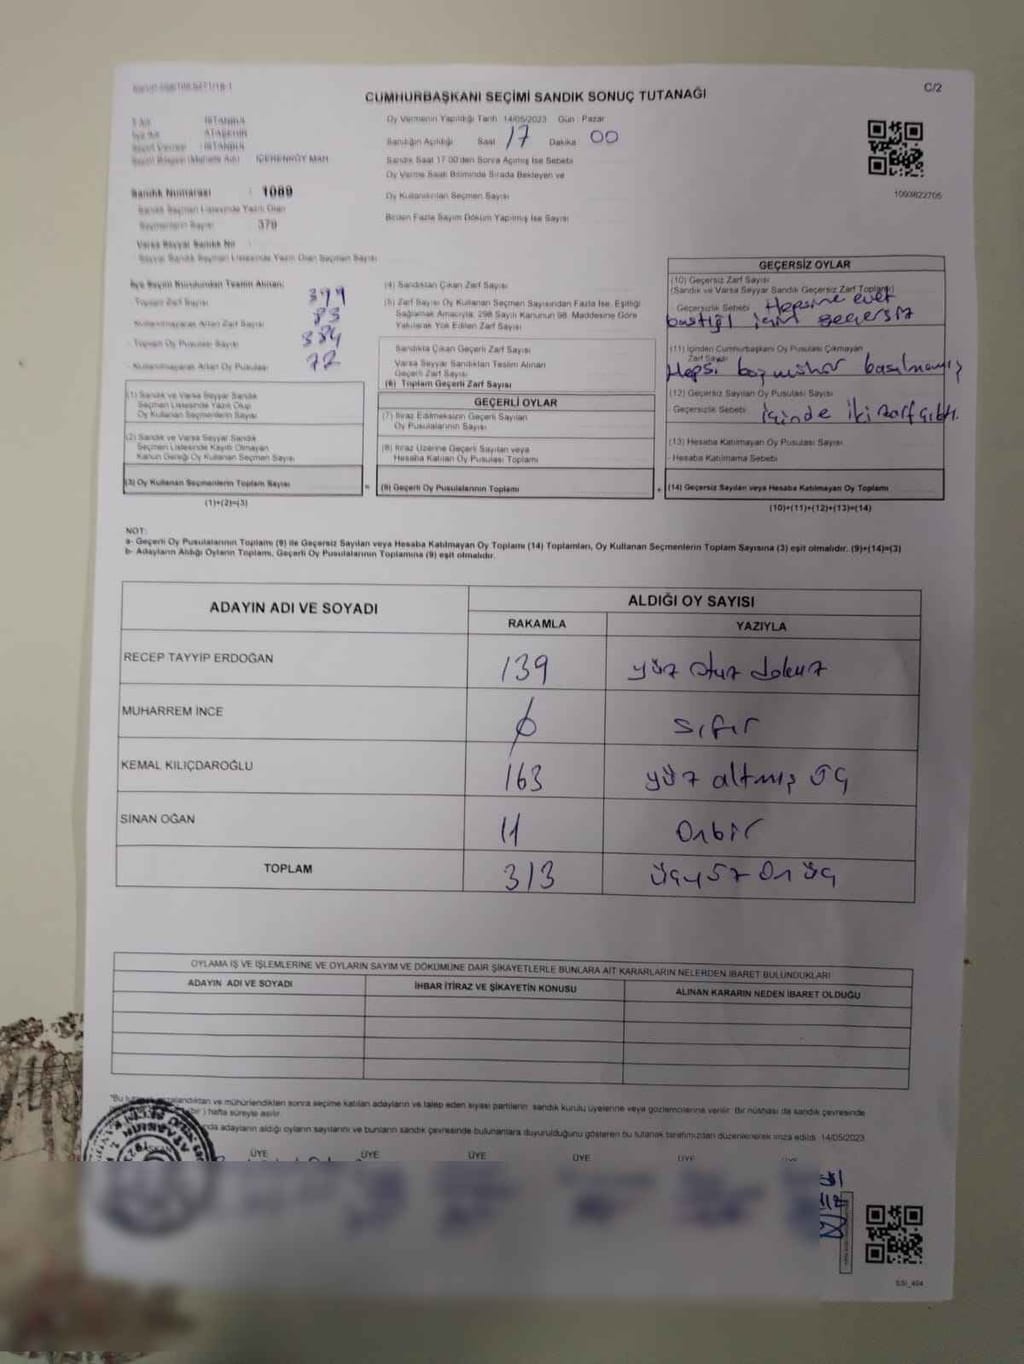 C/2
CUMHURBAŞKANI SEÇİMİ SANDIK SONUÇ TUTANAĞI
Oy Vermenin Yapıldığı Tarih 14/05/2023 Gün : Pazar
Sandığın Açıldığı Saat 17 Dakika 00
Sandık Saat 17.00'den Sonra Açılmış İse Sebebi
Oy Verme Saati Bitiminde Sırada Bekleyen ve
Oy Kullandırılan Seçmen Sayısı
Birden Fazla Sayım Döküm Yapılmış İse Sayısı
1009822705
: İSTANBUL
: ATAŞEHİR
: İSTANBUL
İÇERENKÖY MAH.
Sandık Numarası : 1089
Sandık Seçmen Listesinde Yazılı Olan
Seçmenlerin Sayısı : 379
Varsa Seyyar Sandık No
Seyyar Sandık Seçmen Listesinde Yazılı Olan Seçmen Sayısı
İlçe Seçim Kurulundan Teslim Alınan:
Toplam Zarf Sayısı 399
Kullanılmayarak Artan Zarf Sayısı 83
- Toplam Oy Pusulası Sayısı 384
- Kullanılmayarak Artan Oy Pusulası 72
(1) Sandık ve Varsa Seyyar Sandık
Seçmen Listesinde Yazılı Olup
Oy Kullanan Seçmenlerin Sayısı
(2) Sandık ve Varsa Seyyar Sandık
Seçmen Listesinde Kayıtlı Olmayan
Kanun Gereği Oy Kullanan Seçmen Sayısı
(3) Oy Kullanan Seçmenlerin Toplam Sayısı
(1)+(2)=(3)
(4) Sandıktan Çıkan Zarf Sayısı
(5) Zarf Sayısı Oy Kullanan Seçmen Sayısından Fazla İse, Eşitliği
Sağlamak Amacıyla; 298 Sayılı Kanunun 98. Maddesine Göre
Yakılarak Yok Edilen Zarf Sayısı
Sandıkta Çıkan Geçerli Zarf Sayısı
Varsa Seyyar Sandıktan Teslim Alınan
Geçerli Zarf Sayısı
(6) Toplam Geçerli Zarf Sayısı
GEÇERLİ OYLAR
(7) İtiraz Edilmeksizin Geçerli Sayılan
Oy Pusulalarının Sayısı
(8) İtiraz Üzerine Geçerli Sayılan veya
Hesaba Katılan Oy Pusulası Toplamı
(9) Geçerli Oy Pusulalarının Toplamı
GEÇERSİZ OYLAR
(10) Geçersiz Zarf Sayısı
(Sandık ve Varsa Seyyar Sandık Geçersiz Zarf Toplamı)
Geçersizlik Sebebi : Hepsine evet
bastığı için geçersiz
(11) İçinden Cumhurbaşkanı Oy Pusulası Çıkmayan
Zarf Sayısı
Hepsi boş mühür basılmamış
(12) Geçersiz Sayılan Oy Pusulası Sayısı
Geçersizlik Sebebi : içinde iki zarf çıktı.
(13) Hesaba Katılmayan Oy Pusulası Sayısı
- Hesaba Katılmama Sebebi
(14) Geçersiz Sayılan veya Hesaba Katılmayan Oy Toplamı
(10)+(11)+(12)+(13)=(14)
NOT:
a- Geçerli Oy Pusulalarının Toplamı (9) ile Geçersiz Sayılan veya Hesaba Katılmayan Oy Toplamı (14) Toplamları, Oy Kullanan Seçmenlerin Toplam Sayısına (3) eşit olmalıdır. (9)+(14)=(3)
b- Adayların Aldığı Oyların Toplamı, Geçerli Oy Pusulalarının Toplamına (9) eşit olmalıdır.
ADAYIN ADI VE SOYADI ALDIĞI OY SAYISI
RAKAMLA YAZIYLA
RECEP TAYYİP ERDOĞAN 139 yüz otuz dokuz
MUHARREM İNCE 0 sıfır
KEMAL KILIÇDAROĞLU 163 yüz altmış üç
SİNAN OĞAN 11 onbir
TOPLAM 313 üçyüz on üç
OYLAMA İŞ VE İŞLEMLERİNE VE OYLARIN SAYIM VE DÖKÜMÜNE DAİR ŞİKAYETLERLE BUNLARA AİT KARARLARIN NELERDEN İBARET BULUNDUKLARI
ADAYIN ADI VE SOYADI İHBAR İTİRAZ VE ŞİKAYETİN KONUSU ALINAN KARARIN NEDEN İBARET OLDUĞU
mühürlendikten sonra seçime katılan adayların ve talep eden siyasi partilerin sandık kurulu üyelerine veya gözlemcilerine verilir. Bir nüshası da sandık çevresinde
) hafta süreyle asılır.
adayların aldığı oyların sayılarını ve bunların sandık çevresinde bulunanlara duyurulduğunu gösteren bu tutanak tarafımızdan düzenlenerek imza edildi. 14/05/2023
ÜYE ÜYE ÜYE ÜYE ÜYE
SSI_404